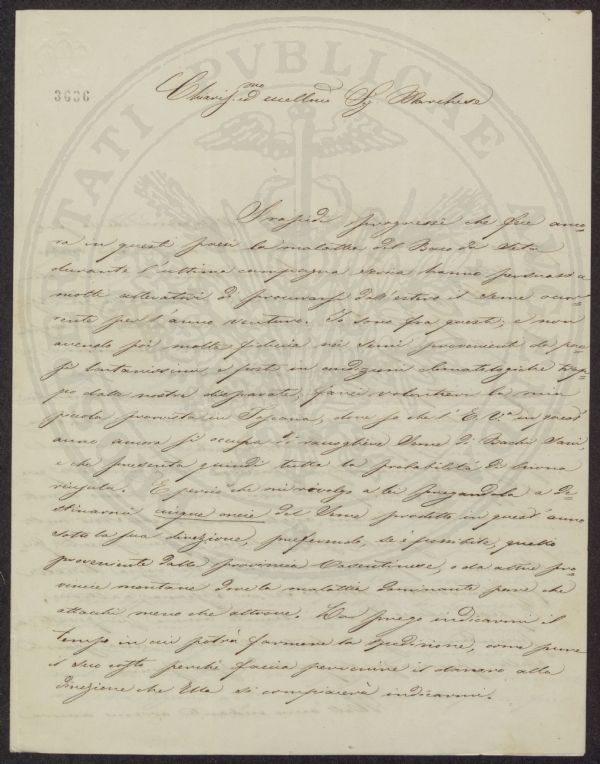 3636
Chiariss.mo ed eccellmo Sig. Marchese
I rapidi progressi che fece anco-
ra in questi paesi la malattia del Baco da Seta
durante l'ultima campagna serica hanno persuaso
molti allevatori di procurarsi dall'estero il seme occor-
rente per l'anno venturo. Io sono fra questi, e non
avendo poi molta fiducia nei semi provenienti da pae-
si lontanissimi, e posti in condizioni climatologiche trop-
po dalle nostre disparate, farei volentieri la mia
piccola provvista in Toscana, dove so che l'E. V.a in quest'
anno ancora si occupa di raccogliere Seme di Bachi Sani,
e che presenta quindi tutta la probabilità di buona
riuscita. È perciò che mi rivolgo a lei pregandola a de-
stinarmi cinque oncie del Seme prodotto in quest'anno
sotto la sua direzione, preferendo, se è possibile, quello
proveniente dalla provincia Casentinese, o da altre pro-
vincie montane dove la malattia dominante pare che
attacchi meno che altrove. La prego indicarmi il
tempo in cui potrà farmene la spedizione, come pure
il suo costo, perchè faccia pervenire il danaro alla
direzione che Ella si compiacerà indicarmi.